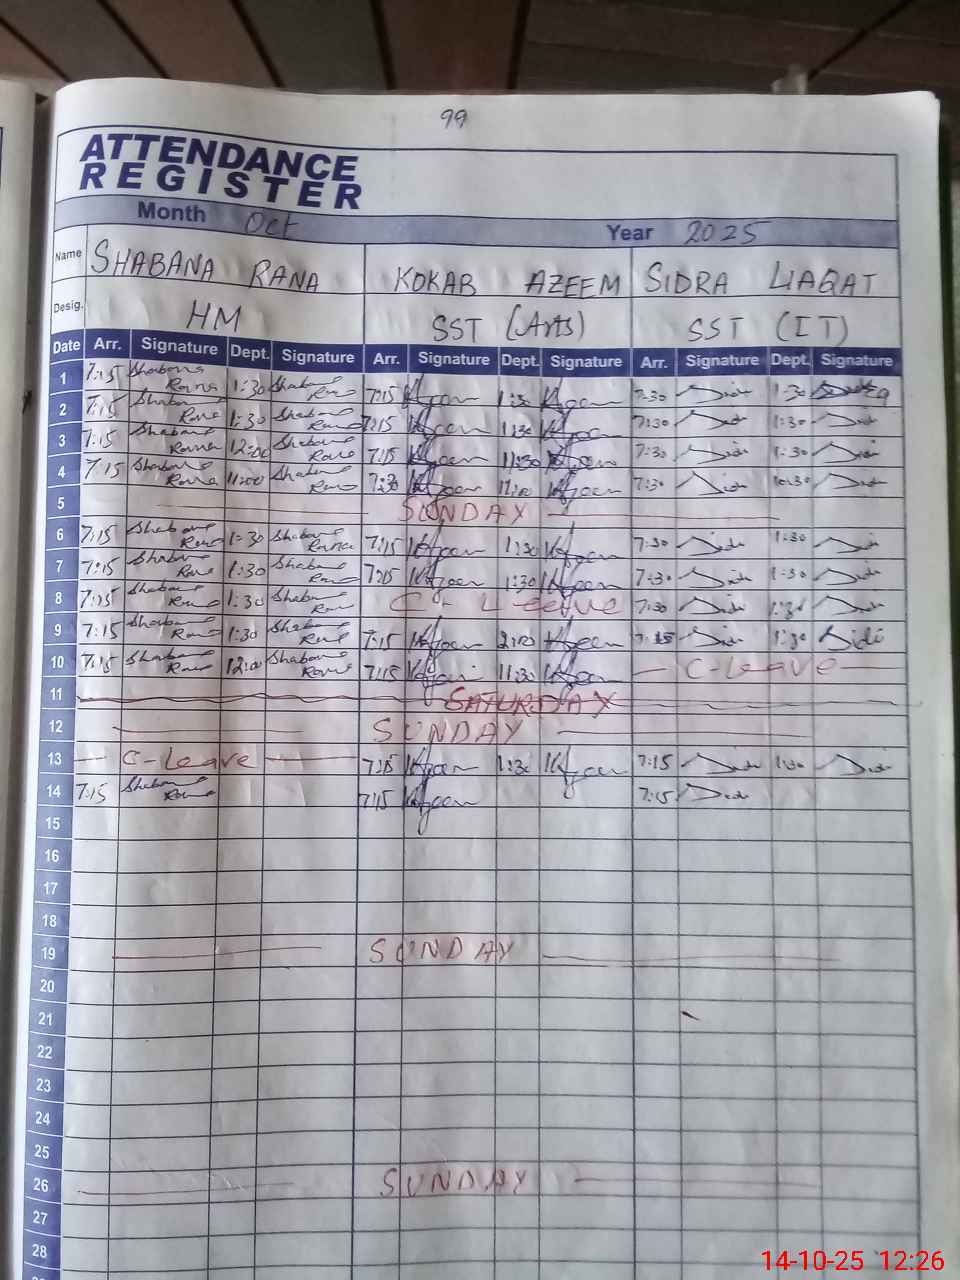 99
ATTENDANCE
REGISTER
Month Oct Year 2025
Name SHABANA RANA KOKAB AZEEM SIDRA LIAQAT
Desig. HM SST (Arts) SST (IT)
Date Arr. Signature Dept. Signature Arr. Signature Dept. Signature Arr. Signature Dept. Signature
1 7:15 Shabana Rana 1:30 Shabana Rana 7:15 1:30 7:30 1:30
2 7:15 Shabana Rana 1:30 Shabana Rana 7:15 1:30 7:30 1:30
3 7:15 Shabana Rana 12:00 Shabana Rana 7:15 11:30 7:30 1:30
4 7:15 Shabana Rana 11:00 Shabana Rana 7:30 11:00 7:30 10:30
5 SUNDAY
6 7:15 Shabana Rana 1:30 Shabana Rana 7:15 1:30 7:30 1:30
7 7:15 Shabana Rana 1:30 Shabana Rana 7:15 1:30 7:30 1:30
8 7:15 Shabana Rana 1:30 Shabana Rana C-Leave 7:30 1:30
9 7:15 Shabana Rana 1:30 Shabana Rana 7:15 2:00 7:15 1:30
10 7:15 Shabana Rana 12:00 Shabana Rana 7:15 11:30 C-Leave
11 SATURDAY
12 SUNDAY
13 C-Leave 7:15 1:30 7:15 1:30
14 7:15 Shabana Rana 7:15 7:15
15
16
17
18
19 SUNDAY
20
21
22
23
24
25
26 SUNDAY
27
28
14-10-25 12:26